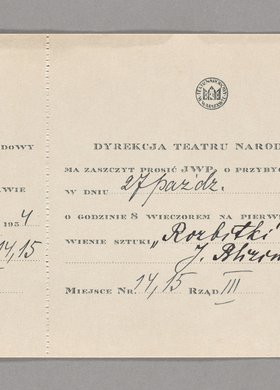 DOWY
AWIE
1954
14,15
DYREKCJA TEATRU NAROD
MA ZASZCZYT PROSIĆ JWP. O PRZYBYC
W DNIU 27 paźdz.
O GODZINIE 8 WIECZOREM NA PIERW
WIENIE SZTUKI „Rozbitki
J. Blizin
MIEJSCE NR. 14, 15 RZĄD III